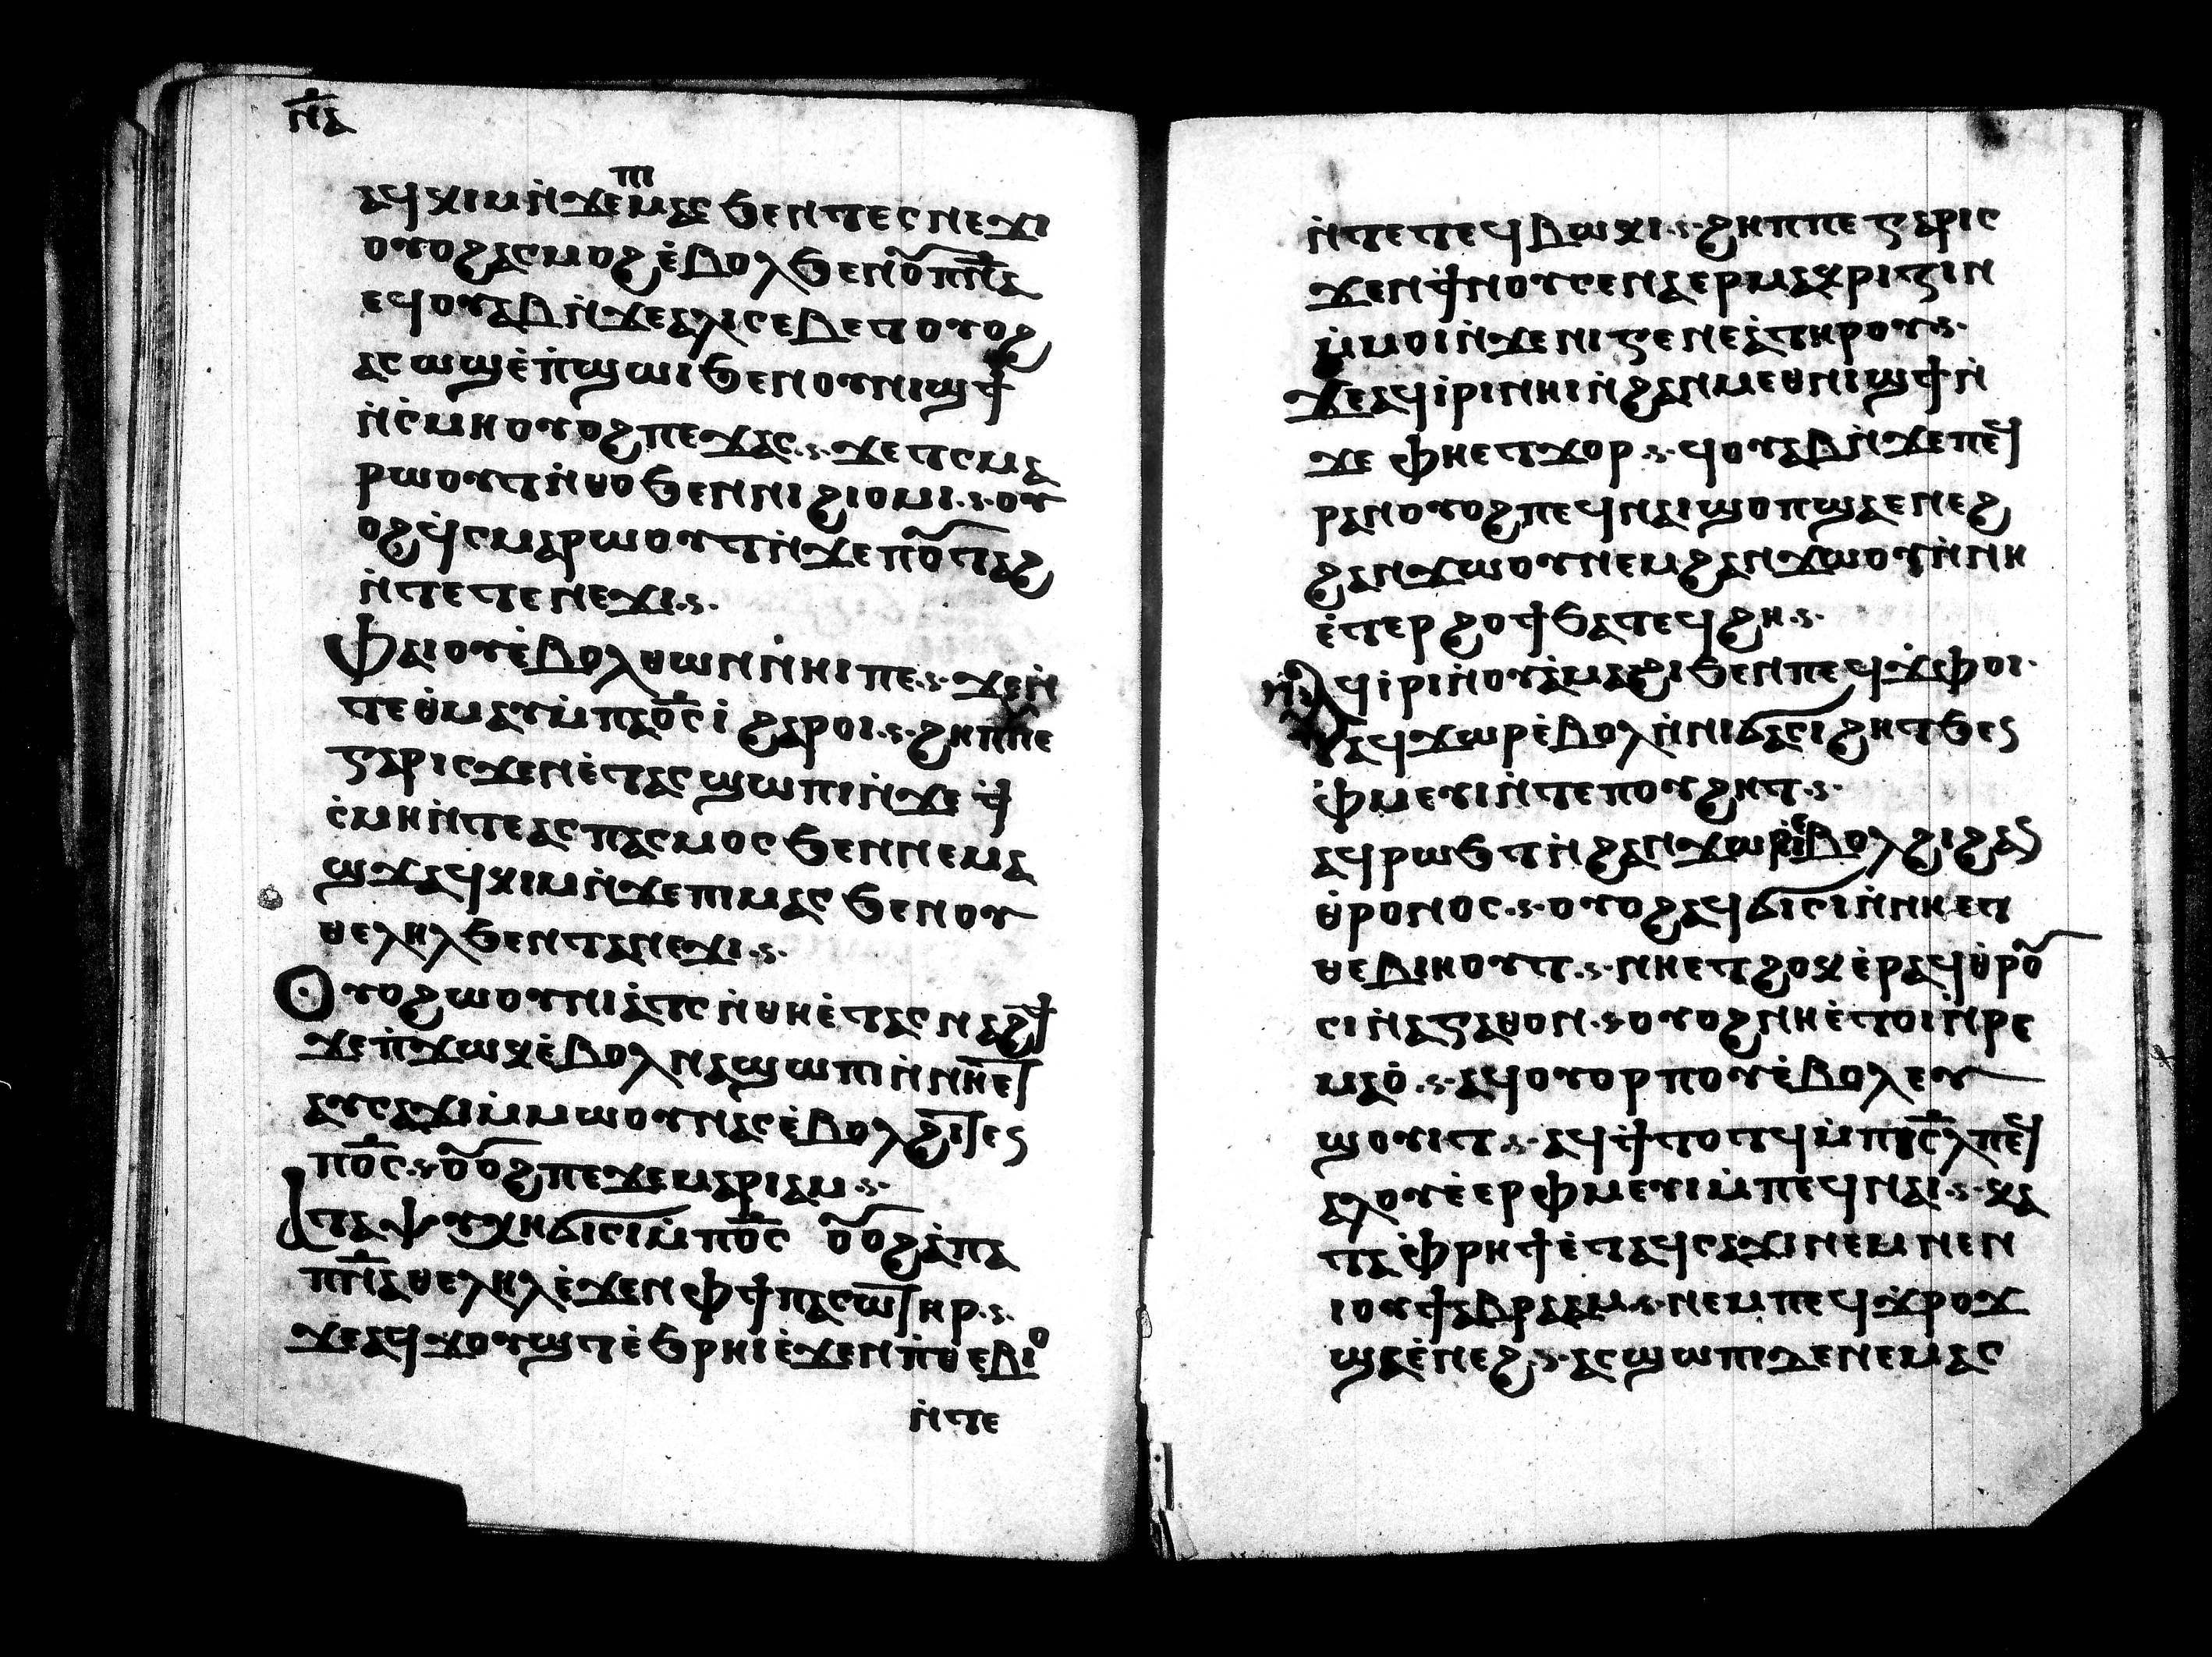 ⲛ̅ⲁ
ⲁϥⲕⲓⲙ ⲛ̀ϫⲉⲡⲓⲙⲁⲥ ϧⲉⲛⲧⲉⲥⲛⲉϫⲓ
ⲟⲩⲟϩ ⲁⲥⲙⲟϩ ⲉ̀ⲃⲟⲗ ϧⲉⲛⲟⲩⲡ̅ⲛ̅ⲁ
ⲉϥⲟⲩⲁⲃ ⲛ̀ϫⲉⲁⲗⲓⲥⲉⲃⲉⲧ ⲟⲩⲟϩ
ⲁⲥⲱϣ ⲉ̀ⲡ̀ϣⲱⲓ ϧⲉⲛⲟⲩⲛⲓϣϯ
ⲛ̀ⲥ̀ⲙⲏ ⲟⲩⲟϩ ⲡⲉϫⲁⲥ· ϫⲉⲧⲥⲙⲁ
ⲣⲱⲟⲩⲧ ⲛ̀ⲑⲟ ϧⲉⲛⲛⲓϩⲓⲟⲙⲓ· ⲟⲩ
ⲟϩ ϥ̀ⲥⲙⲁⲣⲱⲟⲩⲧ ⲛ̀ϫⲉⲡⲟⲩⲧⲁϩ
ⲛ̀ⲧⲉⲧⲉⲛⲉϫⲓ·
Ⲫⲁⲓ ⲟⲩⲉ̀ⲃⲟⲗ ⲑⲱⲛ ⲛ̀ⲏⲓ ⲡⲉ· ϫⲉⲛ̀
ⲧⲉⲑ̀ⲙⲁⲩ ⲙ̀ⲡⲁⲟ̅ⲥ̅ ⲓ̀ ϩⲁⲣⲟⲓ· ϩⲏⲡⲡⲉ
ⲅⲁⲣ ⲓⲥϫⲉⲛ ⲉ̀ⲧⲁⲥϣⲱⲡⲓ ⲛ̀ϫⲉϯ
ⲥ̀ⲙⲏ ⲛ̀ⲧⲉⲁⲥⲡⲁⲥⲙⲟⲥ ϧⲉⲛⲛⲉⲙⲁ
ϣϫ ⲁϥⲕⲓⲙ ⲛ̀ϫⲉⲡⲓⲙⲁⲥ ϧⲉⲛⲟⲩ
ⲑⲉⲗⲏⲗ ϧⲉⲛⲧⲁⲛⲉϫⲓ·
Ⲟⲩⲟϩ ⲱⲟⲩⲛⲓⲁ̀ⲧⲥ ⲛ̀ⲑⲏ ⲉ̀ⲧⲁⲥⲛⲁϩϯ
ϫⲉⲡ̀ϫⲱⲕ ⲉ̀ⲃⲟⲗ ⲛⲁϣⲱⲡⲓ ⲛ̀ⲛⲏⲉⲧ
ⲁⲩⲥⲁϫⲓ ⲙ̀ⲙⲱⲟⲩ ⲛⲁⲥ ⲉ̀ⲃⲟⲗ ϩⲓⲧⲉⲛ
ⲡⲟ̅ⲥ̅· ⲟⲩⲟϩ ⲡⲉϫⲉⲙⲁⲣⲓⲁⲙ·
ⲁ̀ ⲧⲁⲯⲩⲭⲏ ϭⲓⲥⲓ ⲙ̀ⲡⲟ̅ⲥ̅ ⲟⲩⲟϩ ⲁ̀ⲡⲁ
ⲡ̅ⲛ̅ⲁ ⲑⲉⲗⲏⲗ ⲉ̀ϫⲉⲛⲫϯ ⲡⲁⲥⲱⲧⲏⲣ·
ϫⲉⲁϥϫⲟⲩϣⲧ ⲉ̀ϧⲣⲏⲓ ⲉ̀ϫⲉⲛⲡ̀ⲑⲉⲃⲓⲟ
ⲛ̀ⲧⲉ
ⲛ̀ⲧⲉⲧⲉϥⲃⲱⲕⲓ· ϩⲏⲡⲡⲉ ⲅⲁⲣ ⲓⲥ
ϫⲉⲛϯⲛⲟⲩ ⲥⲉⲛⲁⲉⲣⲙⲁⲕⲣⲓⲍⲓⲛ
ⲙ̀ⲙⲟⲓ ⲛ̀ϫⲉⲛⲓⲅⲉⲛⲉⲁ̀ ⲧⲏⲣⲟⲩ·
ϫⲉⲁϥⲓ̀ⲣⲓ ⲛⲏⲓ ⲛ̀ϩⲁⲛⲙⲉⲑⲛⲓϣϯ ⲛ̀
ϫⲉⲫⲏⲉⲧϫⲟⲣ· ϥⲟⲩⲁⲃ ⲛ̀ϫⲉⲡⲉϥ
ⲣⲁⲛ ⲟⲩⲟϩ ⲡⲉϥⲛⲁⲓ ϣⲟⲡ ϣⲁⲉⲛⲉϩ
ϩⲁⲛϫⲱⲟⲩ ⲛⲉⲙϩⲁⲛϫⲱⲟⲩ ⲛ̀ⲛⲏ
ⲉ̀ⲧⲉⲣϩⲟϯ ϧⲁⲧⲉϥϩⲏ·
ⲁϥⲓ̀ⲣⲓ ⲛ̀ⲟⲩⲁ̀ⲙⲁϩⲓ ϧⲉⲛⲡⲉϥϫ̀ⲫⲟⲓ·
ⲁϥϫⲱⲣ ⲉ̀ⲃⲟⲗ ⲛ̀ⲛⲓϭⲁⲥⲓϩⲏⲧ ϧⲉⲛ
ⲫ̀ⲙⲉⲩⲓ ⲛ̀ⲧⲉⲡⲟⲩϩⲏⲧ·
ⲁϥⲣⲱϧⲧ ⲛ̀ϩⲁⲛϫⲱⲣⲓ ⲉ̀ⲃⲟⲗ ϩⲓϩⲁⲛ
ⲑ̀ⲣⲟⲛⲟⲥ· ⲟⲩⲟϩ ⲁϥϭⲓⲥⲓ ⲛ̀ⲛⲏⲉⲧ
ⲑⲉⲃⲓⲏⲟⲩⲧ· ⲛⲏⲉⲧϩⲟⲕⲉⲣ ⲁϥⲑ̀ⲣⲟⲩ
ⲥⲓ ⲛ̀ⲁⲅⲁⲑⲟⲛ· ⲟⲩⲟϩ ⲛⲏⲉ̀ⲧⲟⲓ ⲛ̀ⲣⲉ
ⲙⲁⲟ̀· ⲁϥⲟⲩⲟⲣⲡⲟⲩ ⲉ̀ⲃⲟⲗ ⲉⲩ
ϣⲟⲩⲓⲧ· ⲁϥϯⲧⲟⲧϥ ⲙ̀ⲡⲓⲥ̅ⲗ̅ ⲡⲉϥ
ⲁⲗⲟⲩ ⲉ̀ⲉⲣⲫ̀ⲙⲉⲩⲓ ⲙ̀ⲡⲉϥⲛⲁⲓ· ⲕⲁ
ⲧⲁⲫ̀ⲣⲏϯ ⲉ̀ⲧⲁϥⲥⲁϫⲓ ⲛⲉⲙⲛⲉⲛ
ⲓⲟϯ ⲁⲃⲣⲁⲁⲙ· ⲛⲉⲙⲡⲉϥϫ̀ⲣⲟϫ
ϣⲁⲉ̀ⲛⲉϩ· ⲁⲥϣⲱⲡⲓ ⲇⲉ ⲛⲉⲙⲁⲥ